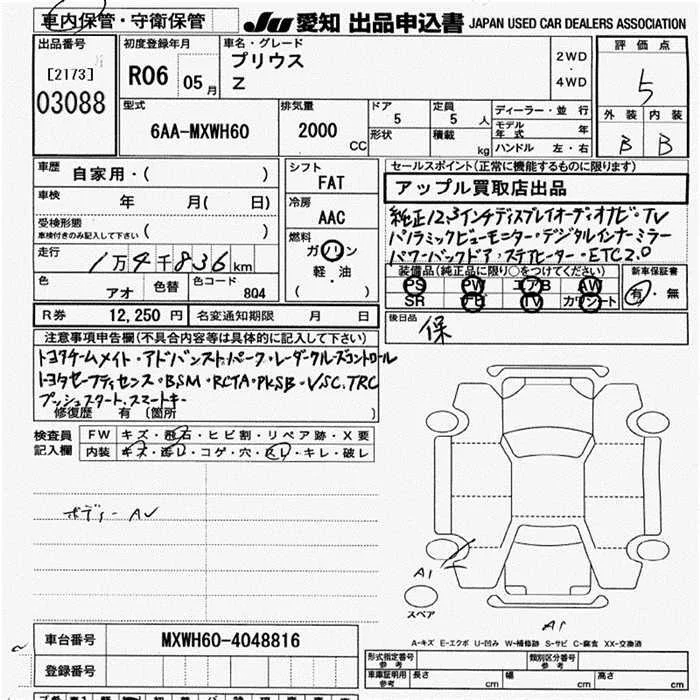 車内保管・守衛保管 JU 愛知 出品申込書 JAPAN USED CAR DEALERS ASSOCIATION
出品番号
[2173]
03088
初度登録年月
R06 05月
車名・グレード
プリウス
Z
2WD
・
4WD
評価点
5
外装 内装
B B
型式
6AA-MXWH60
排気量
2000 CC
ドア 5
定員 5 人
形状
積載 kg
ディーラー・並行
モデル年式 年
ハンドル 左・右
車歴 自家用・( )
車検 年 月( 日)
受検形態
車検付きのみ記入して下さい ( )
走行 1万4千836km
色 アオ
色替
色コード 804
シフト
FAT
冷房
AAC
燃料
ガソリン
軽・油
( )
セールスポイント(正常に機能するものに限ります)
アップル買取店出品
純正12.3インチディスプレイオーディオナビ・TV
パノラミックビューモニター・デジタルインナーミラー
パワーバックドア・ステアヒーター・ETC2.0
装備品(純正品に限り○をつけてください)
PS PW エアB AW
SR ナビ TV カワシート
新車保証書
有・無
R券 12,250 円
名変通知期限 月 日
後日品 保
注意事項申告欄(不具合内容等は具体的に記入して下さい)
トヨタチームメイト・アドバンストパーク・レーダークルーズコントロール
トヨタセーフティセンス・BSM・RCTA・PKSB・VSC.TRC
プッシュスタート.スマートキー
修復歴 有 (箇所 )
検査員記入欄
FW キズ・飛石・ヒビ割・リペア跡・X要
内装 キズ・汚レ・コゲ・穴・スレ・キレ・破レ
ボディー AU
A1
スペア
A1
A-キズ E-エクボ U-凹み W-補修跡 S-サビ C-腐食 XX-交換済
車台番号 MXWH60-4048816
登録番号
形式指定番号 参考
類別区分番号 参考
車庫証明用 参考 長さ cm 幅 cm 高さ cm